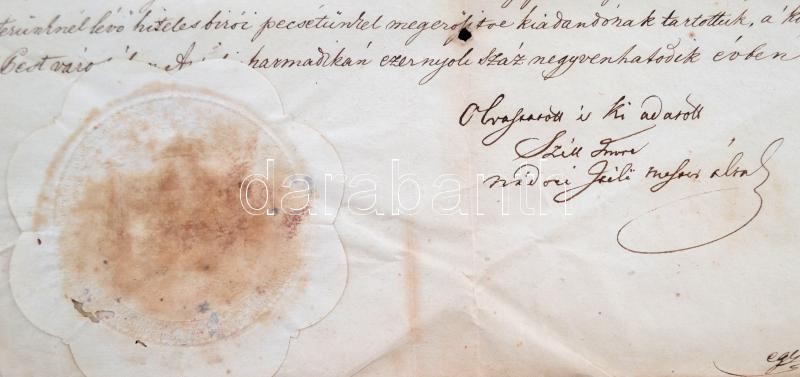 terünknél lévő hiteles birói pecsétünkel megerősitve kiadandónak tartottuk, á
Pest váro harmadikán ezernyolc száz negyvenhatodik évben
Olvastatott és ki adatott
Széll Imre
nádori itélő mester által
darabanth